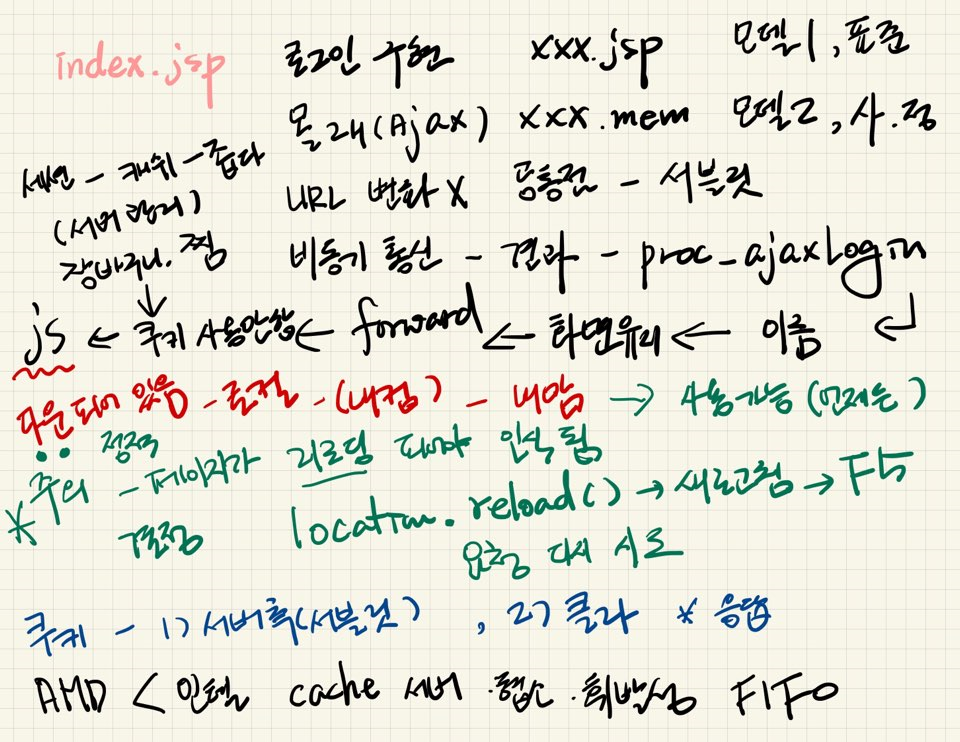 index.jsp 로그인 구현 xxx.jsp 모델1, 표준
몰래(Ajax) xxx.mem 모델2, 사.정
세션 - 캐쉬 - 좁다
URL 변화 X 공통점 - 서블릿
(서버 램리)
장바구니. 찜 비동기 통신 - 결과 - proc_ajaxLogin
js ← 쿠키 사용안함 ← forward ← 화면유지 ← 이름
다운되어 있음 - 로컬 - (내컴) - 내암 → 사용가능 (언제든)
정적
* 주의 - 페이지가 리로딩 되어야 인식 됨
결정 location.reload() → 새로고침 → F5
요청 다시 시도
쿠키 - 1) 서버측(서블릿), 2) 클라 * 응답
AMD < 인텔 cache 서버 ·캡소·휘발성 FIFO